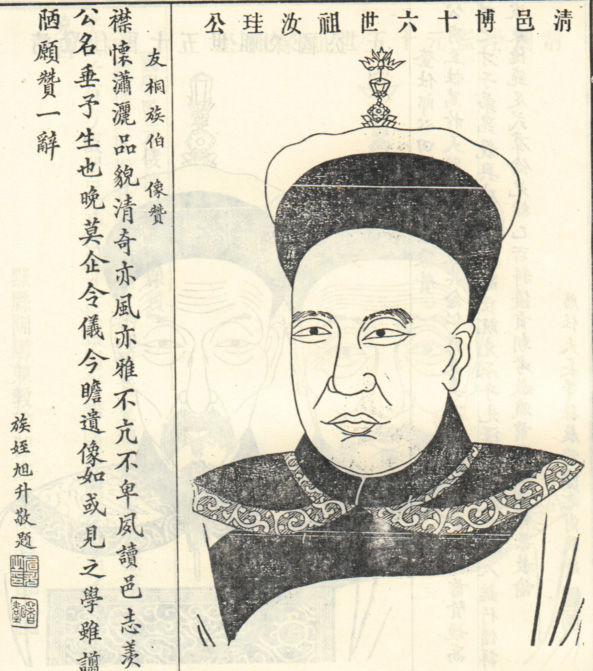 清邑博十六世祖汝珪公
友桐族伯 像贊
襟懷瀟灑品貌清奇亦風亦雅不亢不卑夙讀邑志羨
公名垂予生也晚莫企令儀今瞻遺像如或見之學雖譾
陋願贊一辭
族姪旭升敬題